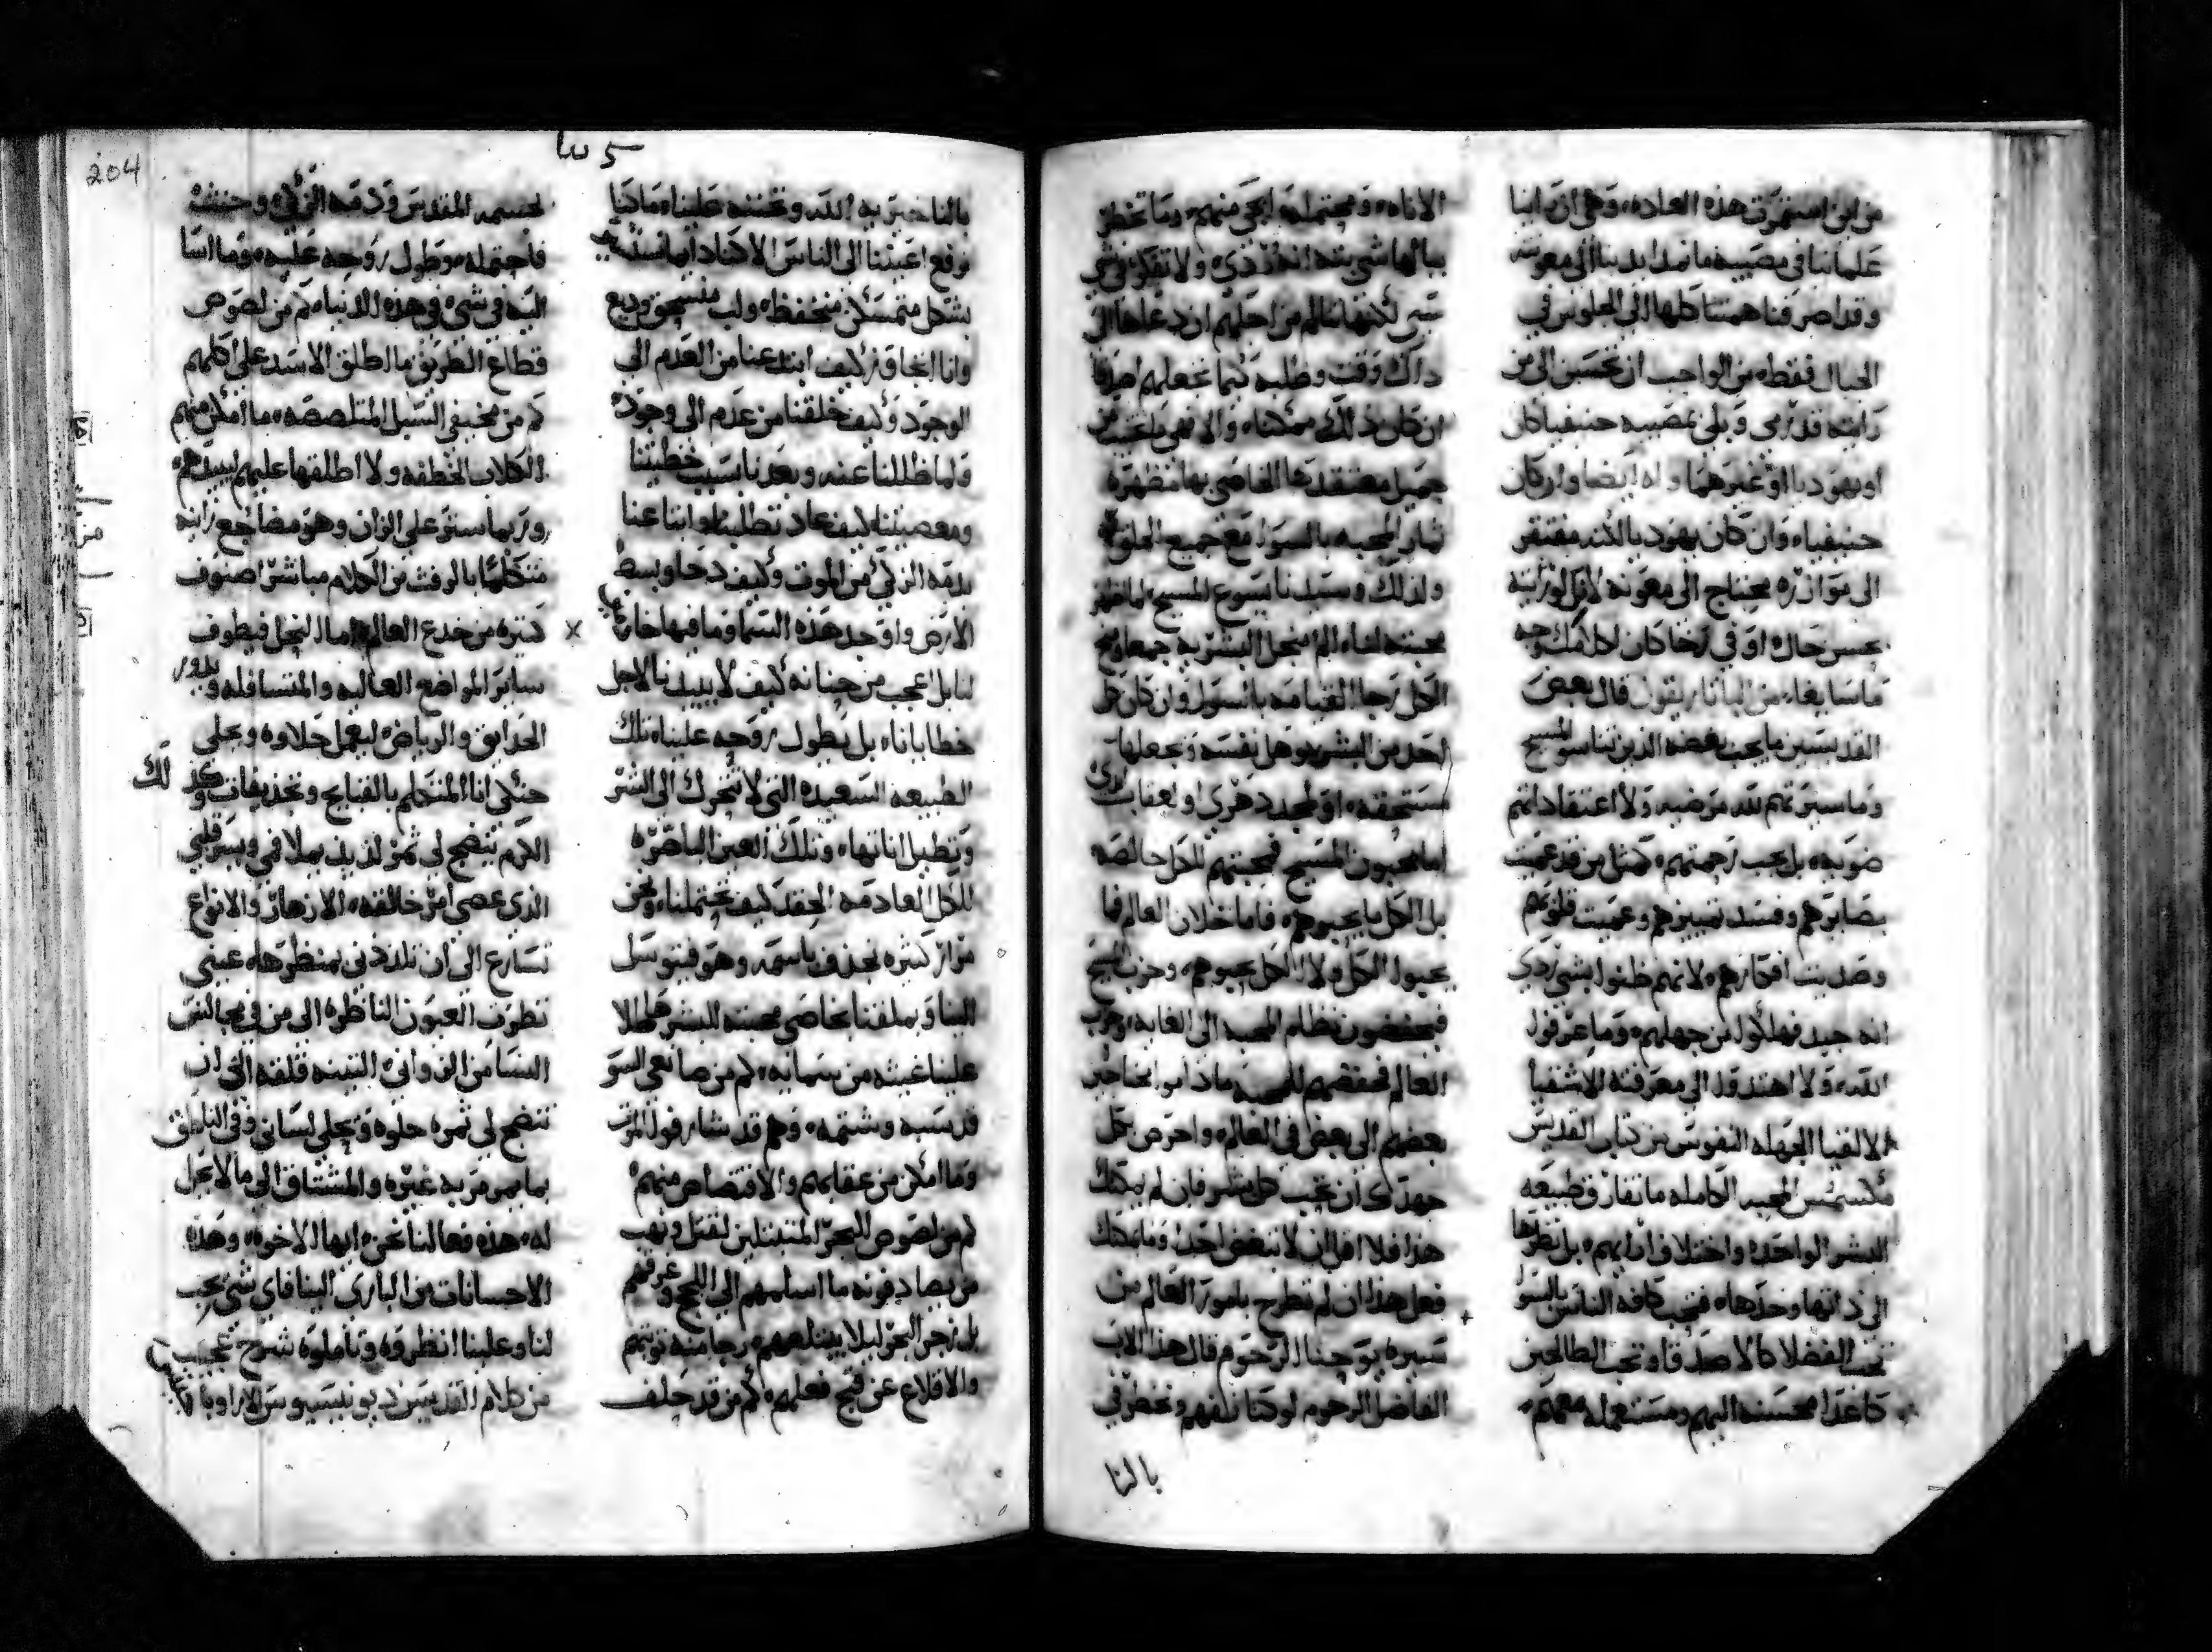 من اين استمرت هذه العاده وهي ان راينا
علمانيا في مصيبه ما نمد ايدينا الى معونته
وقد اصرفنا همتنا كلها الى الجلوس في
الجبال فقط من الواجب ان نحسن الى من
رايته قد رمي وبلي بمصيبه حنيفيا كان
او يهوديا او غيرهما وله ايضا وان كان
حنيفيا وان كان يهوديا لكنه مفتقر
الى موازره محتاج الى معونه
بحسن حال او في رخا كان لكلامك وجه
ما سايغا يقول قال بعض
القديسين ما يجب بغضه الذين تناسو المسيح
وما سيرتهم لله مرضيه ولا اعتقاداتهم
صويبه بل يجب رحمتهم كمثل من قد عميت
بصايرهم وفسد تمييزهم وعميت قلوبهم
وصديت افكارهم لانهم ظنوا بشي ردي
انه جيد فهلكوا من جهلهم وما عرفوا
الله ولا اهتدوا الى معرفته الاشقيا
الاغبيا الجهله النفوس من كتاب القديس
مكسيمس المحبه الكامله ما تفارق طبيعه
البشر الواحده واختلاف ارايهم بل نظرها
الى ذاتها وحدها فتحب كافه الناس بالسوا
تحب الفضلا كالاصدقا وتحب الطالحين
كاعدا محسنه اليهم ومستعمله معهم
الاناه ومحتمله ما يجي منهم وما تخطر
ببالها شي بته انه ردي ولا تفكر في شي
لكنها تتالم من اجلهم ان دعاها الى
ذاك وقت وطلبه كيما تجعلهم اصدقا
ان كان ذلك ممكنا والا فهي ما تخيب من
جميل معتقدها الخاصي بها مظهره
ثمار المحبه بالسوا مع جميع الخلق
ولذلك وسيدنا يسوع المسيح لما ظهر
محبته لنا الم من اجل البشريه جمعا ومنح
الكل رجا القيامه بالسوا وان كان كل
احد من البشر يوهل نفسه ويجعلها
مستحقه او لمجد دهري او لعقاب
اما محبون المسيح فمحبتهم للكل خالصه
بل الكل ما يحبوهم فاما خلان العالم فما
يحبوا الكل ولا الكل يحبوهم وحزب المسيح
فيحفظون نظام المحبه الى الغايه وحزب
العالم فحفظهم للمحبه ماداموا محتاجين
بعضهم الى بعض في العالم واحرص بكل
جهدك ان تحب كل بشر فان لم يمكنك
هذا فلا اقل ان لا تبغض احدا وما يمكنك
فعل هذا ان لم تطرح بامور العالم من
سيره يوحنا الرحوم قال هذا الاب
الفاضل الرحوم لو كنا نفهم ونخطر في
بالنا
بالنا خيريه الله وتحننه علينا ما كنا
نرفع اعيننا الى الناس
بشكل متمسكن متحفظ ولب منسحق وديع
وانا كيف ابتدعنا من العدم الى
الوجود وكيف خلقنا من عدم الى وجود
ولما ظللنا عنه وبعدنا بسبب خطيتنا
ومعصيتنا كيف عاد تطلبنا وابتاعنا
بدمه الزكي من الموت وكيف دحا وبسط
الارض واوجد هذه السما وما فيها
لنا بل اعجب من حنانه كيف لا يبيدنا لاجل
خطايانا بل يطول روحه علينا تلك
الطبيعه السعيده التي لا تتحرك الى الشر
وتطيل اناتها وتلك العين الباصره
للكل العادمه الحقد كيف تحتملنا ونحن
مرار كثيره نجدف باسمه وهو فيتوسل
الينا ويملقنا بخاصي محبته للبشر
علينا غيثه من سمايه كم من صانعي السو
قد سبه وشتمه وهم قد شارفوا الموت
وما امكن من عقابهم والاقتصاص منهم
كم من لصوص للبحر المتقبلين لقتل ونهب
من يصادفونه ما اسلمهم الى اللجج وغرقهم
بل زجر البحر ليلا يبتلعهم رجا منه توبتهم
والاقلاع عن قبح فعلهم كم من قد حلف
لجسمه المقدس ودمه الزكي وحنث
فاحتمله وطول روحه عليه وما اسا
اليه في شي في هذه الدنيا كم من لصوص
قطاع الطريق ما اطلق الاسد على اكلهم
كم من مخيفي السبل المتلصصه ما امكن منهم
الكلاب الخطفه ولا اطلقها عليهم
وربما ستر على الزان وهو مضاجع زانيه
متكلما بالرفث من الكلام مباشرا صنوف
كثيره من خدع العالم اما النحل فيطوف
ساير المواضع العاليه والمتسافله ويدور
الحدايق والرياض ليعمل حلاوه ويحلي
حنكي انا المتكلم بالقبايح وتجديفات وكذلك
الكرم تنضج لي ثمر لذيذ يملا فمي ويسر قلبي
الذي عصى امر خالقه الازهار والانواع
تسارع الى ان تلذذني بمنظرها عيني
تطرف العيون الناظره الى من في مجالس
النسا من الزواني التينه قلقه الى ان
تنضج لي ثمره حلوه ويحلي لساني
غيره والمشتاق الى ما لا يحل
له هذه فعالنا نحن ايها الاخوه وهذه
الاحسانات من الباري الينا فاي شي يجب
لنا وعلينا انظروه وتاملوه شرح عجيب
من كلام القديس ديونيسيوس
204